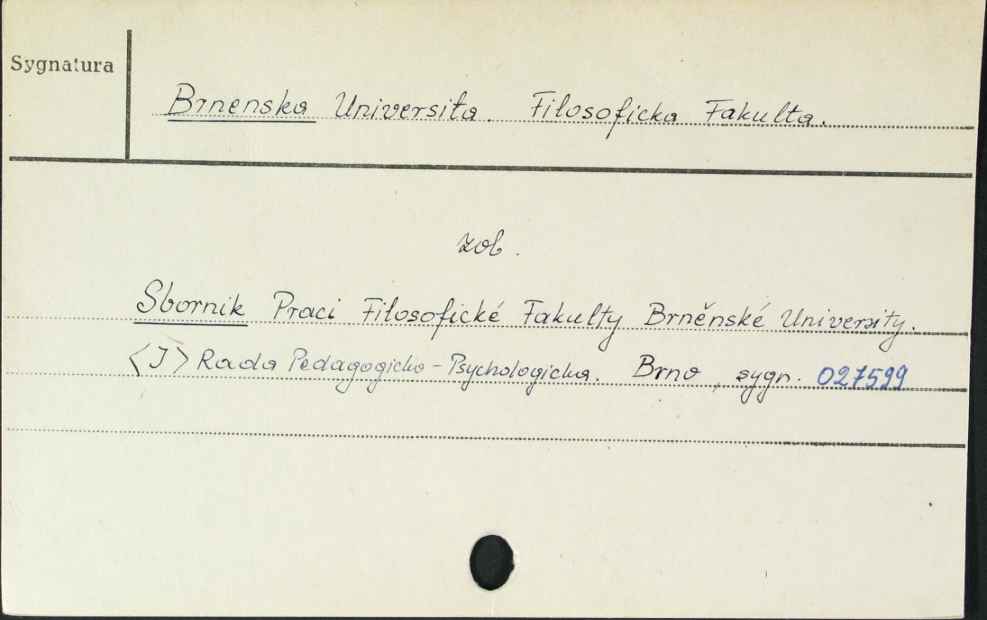 Sygnatura
Brnenska Universita. Filosoficka Fakulta.
zob.
Sbornik Praci Filosofické Fakulty Brněnské University.
<J> Rada Pedagogicko-Psychologicka. Brno, sygn. 027599